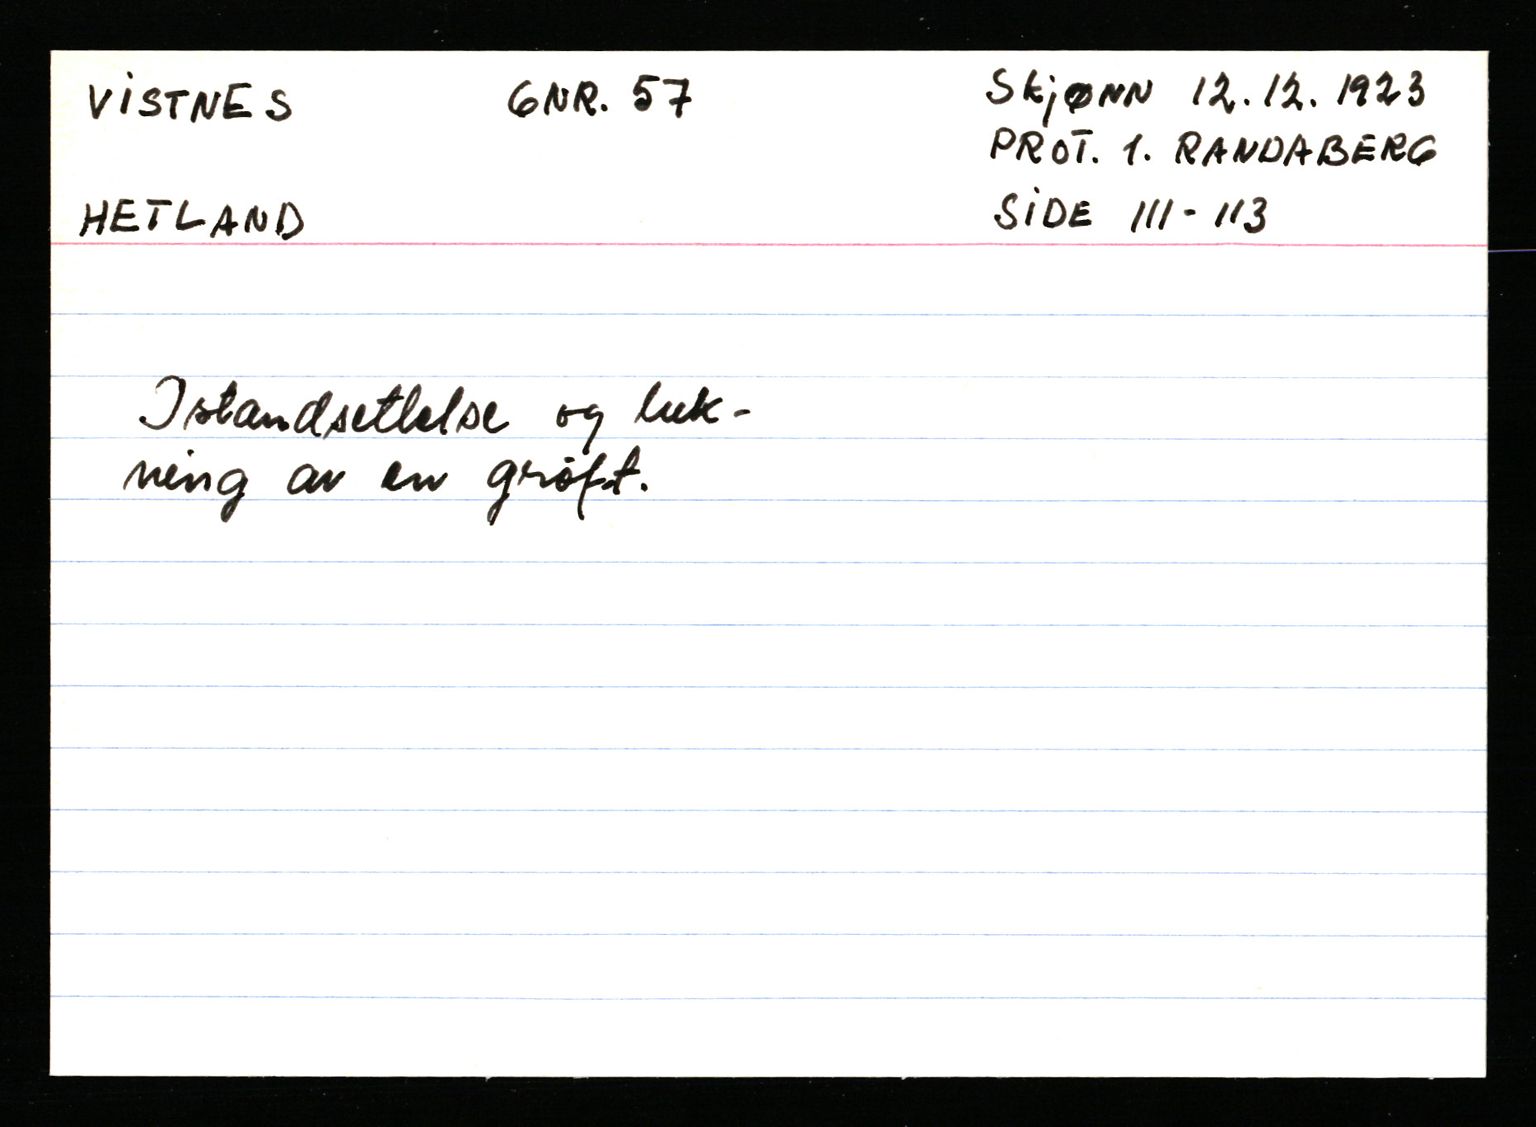 VISTNES GNR. 57 Skjønn 12.12.1923
PROT. 1. RANDABERG
HETLAND SIDE 111-113
Istandsettelse og luk-
ning av en grøft.